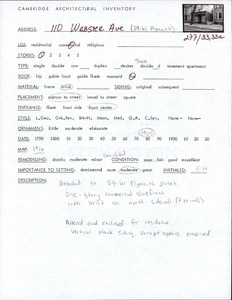 CAMBRIDGE ARCHITECTURAL INVENTORY
ADDRESS: 110 Webster Ave (59-61 Plymouth)
277/33,33a
USE: residential commercial religious
STORIES: 1 2 3 4 5
Store
TYPE: single double row duplex decker double d tenement apartment
ROOF: hip gable front gable flank mansard
MATERIAL: frame brick SIDING: original subsequent
PLACEMENT: narrow to street broad to street square
ENTRANCE: flank front side front center
STYLE:
ORNAMENT: little moderate elaborate
DATE: 1790 1800 10 20 30 40 50 60 70 80 90 1900 10 20 30
MAP: 1916
REMODELING: drastic moderate minor CONDITION poor fair good excellent
IMPORTANCE TO SETTING: detrimental moderate great INITIALED:
DESCRIPTION:
Attached to 59-61 Plymouth Street.
One-story commercial storefront
with brick on north sidewall
Altered and enclosed for residence
Vertical plank siding, parapet preserved